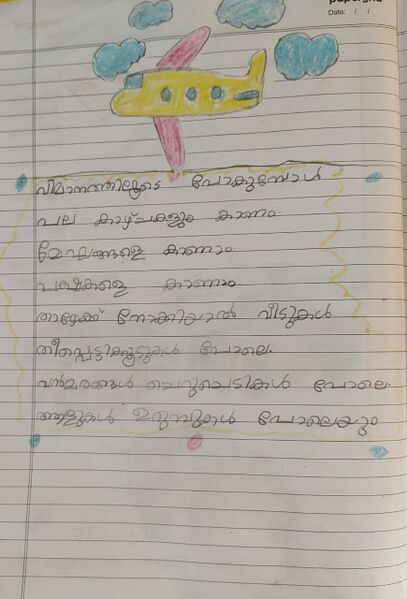 Date: / /
വിമാനത്തിലൂടെ പോകുമ്പോൾ
പല കാഴ്ചകളും കാണാം.
മേഘങ്ങളെ കാണാം.
പക്ഷികളെ കാണാം
താഴേക്ക് നോക്കിയാൽ വീടുകൾ
തീപ്പെട്ടിക്കൂടുകൾ പോലെ.
വൻമരങ്ങൾ ചെറുചെടികൾ പോലെ
ആളുകൾ ഉറുമ്പുകൾ പോലെയും